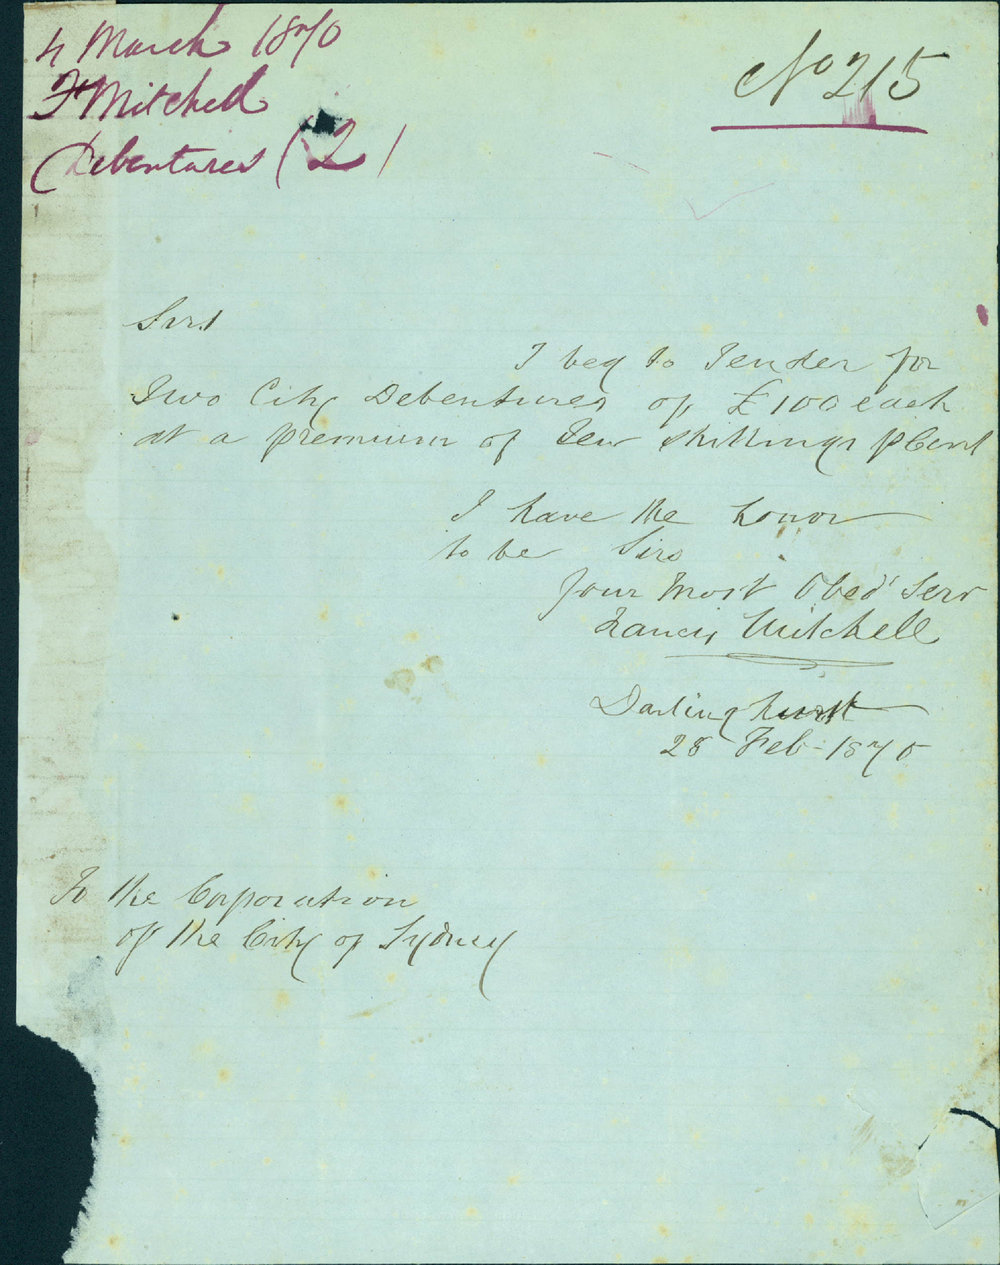 4 March 1870
F Mitchell
Debentures (2)
No 215
Sirs
I beg to Tender for
Two City Debentures of £100 each
at a premium of Ten Shillings p Cent
I have the honor
to be Sirs
Your Most Obed' Serv
Francis Mitchell
Darlinghurst
28 Feb - 1870
To the Corporation
of the City of Sydney